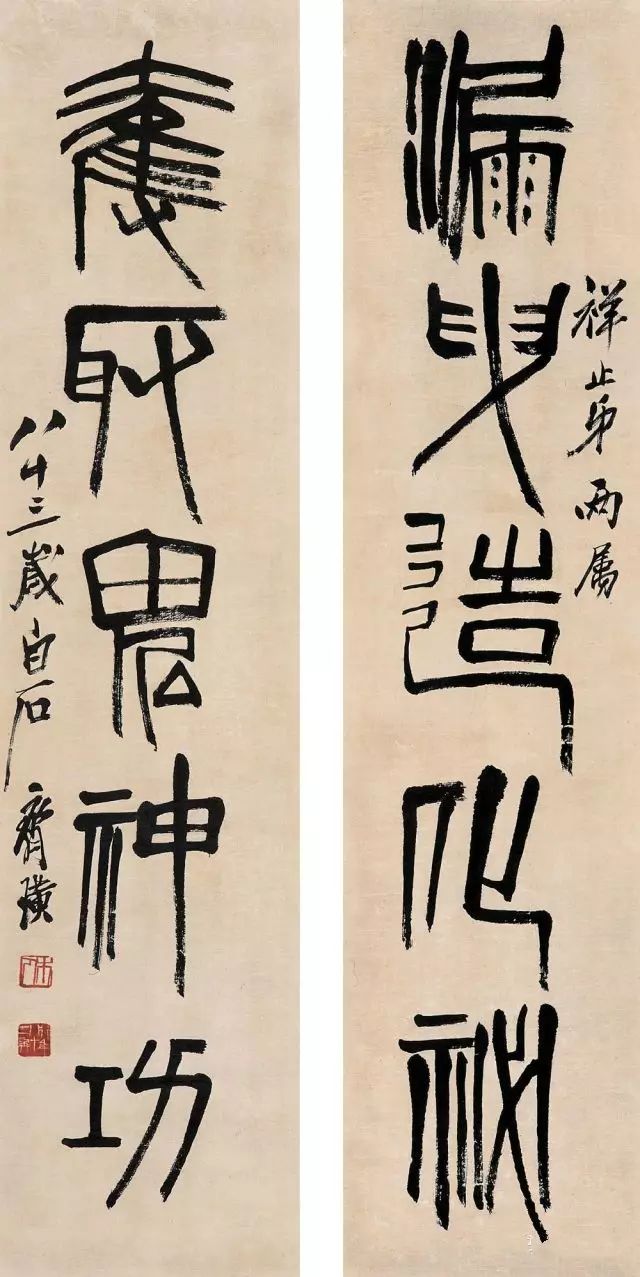 漏曳造化祕
祥止弟两属
奪取鬼神功
八十三歲白石齊璜